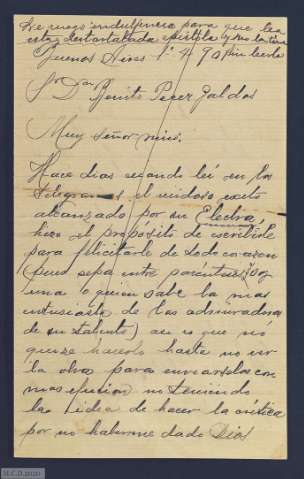 Le ruego indulgencia para que lea
esta destartalada epístola y no la tire
Buenos Aires 1º 4 90
Sr Dn Benito Perez Galdos
Muy señor mio:
Hace dias cuando leí en los
telegramas el ruidoso exito
alcanzado por su Electra,
hice el proposito de escribirle
para felicitarle de todo corazon
(pues sepa entre parentesis soy
una o quien sabe la mas
entusiasta de las admiradoras
de su talento) asi es que nó
quize hacerlo hasta no ver
la obra para enviarselas con
mas efusion no teniendo
la idea de hacer la critica
por no haberme dado Dios
M.C.D. 2020